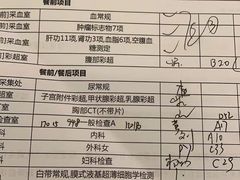 餐前项目
前]采血室 血常规
]采血室 肿瘤标志物7项
]采血室 肝功11项,肾功3项,血脂6项,空腹血糖测定
超室 腹部彩超 B20
餐前/餐后项目
采集处 尿常规
超室 子宫附件彩超,甲状腺彩超,乳腺彩超
室 胸部CT(不带片)
一般检查A A17
室 内科 A10
室 外科女
室 妇科检查 C23
白带常规,膜式液基超薄细胞学检测